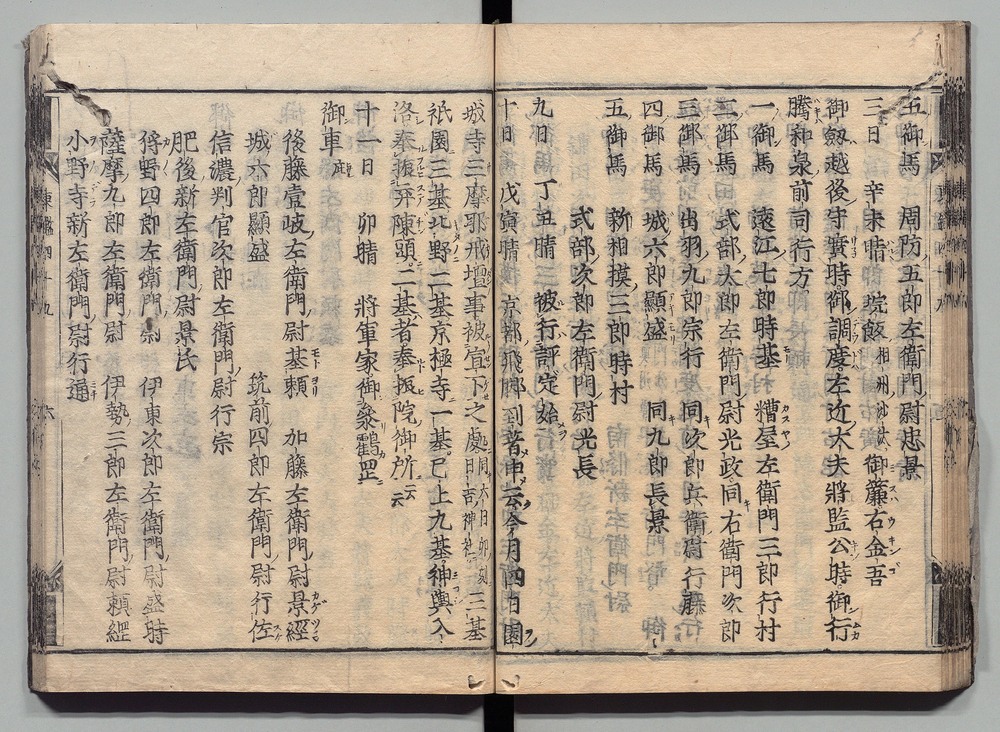 五御馬　周防五郎左衛門尉忠景
三日　辛未晴　垸飯相州御沙汰御簾右金吾
御劔越後守實時御調度左近大夫將監公時御行
騰和泉前司行方
一御馬　遠江七郎時基　糟屋左衛門三郎行村
二御馬　式部太郎左衛門尉光政同右衛門次郎
三御馬　出羽九郎宗行　同次郎兵衛尉行藤
四御馬　城六郎顯盛　同九郎長景
五御馬　新相摸三郎時村
式部次郎左衛門尉光長
九日　丁丑晴　被行評定始
十日　戊寅晴　京都飛脚到著申云今月四日園
城寺三摩耶戒壇事被宣下之處同六日卯刻日吉神社三基
祇園三基北野二基京極寺一基已上九基神輿入
洛奉振弃陳頭二基者奉振院御所云云
十一日　卯晴　將軍家御參鶴罡
御車庇
後藤壹岐左衛門尉基頼　加藤左衛門尉景經
城六郎顯盛　筑前四郎左衛門尉行佐
信濃判官次郎左衛門尉行宗
肥後新左衛門尉景氏
狩野四郎左衛門尉　伊東次郎左衛門尉盛時
薩摩九郎左衛門尉　伊勢三郎左衛門尉頼經
小野寺新左衛門尉行通